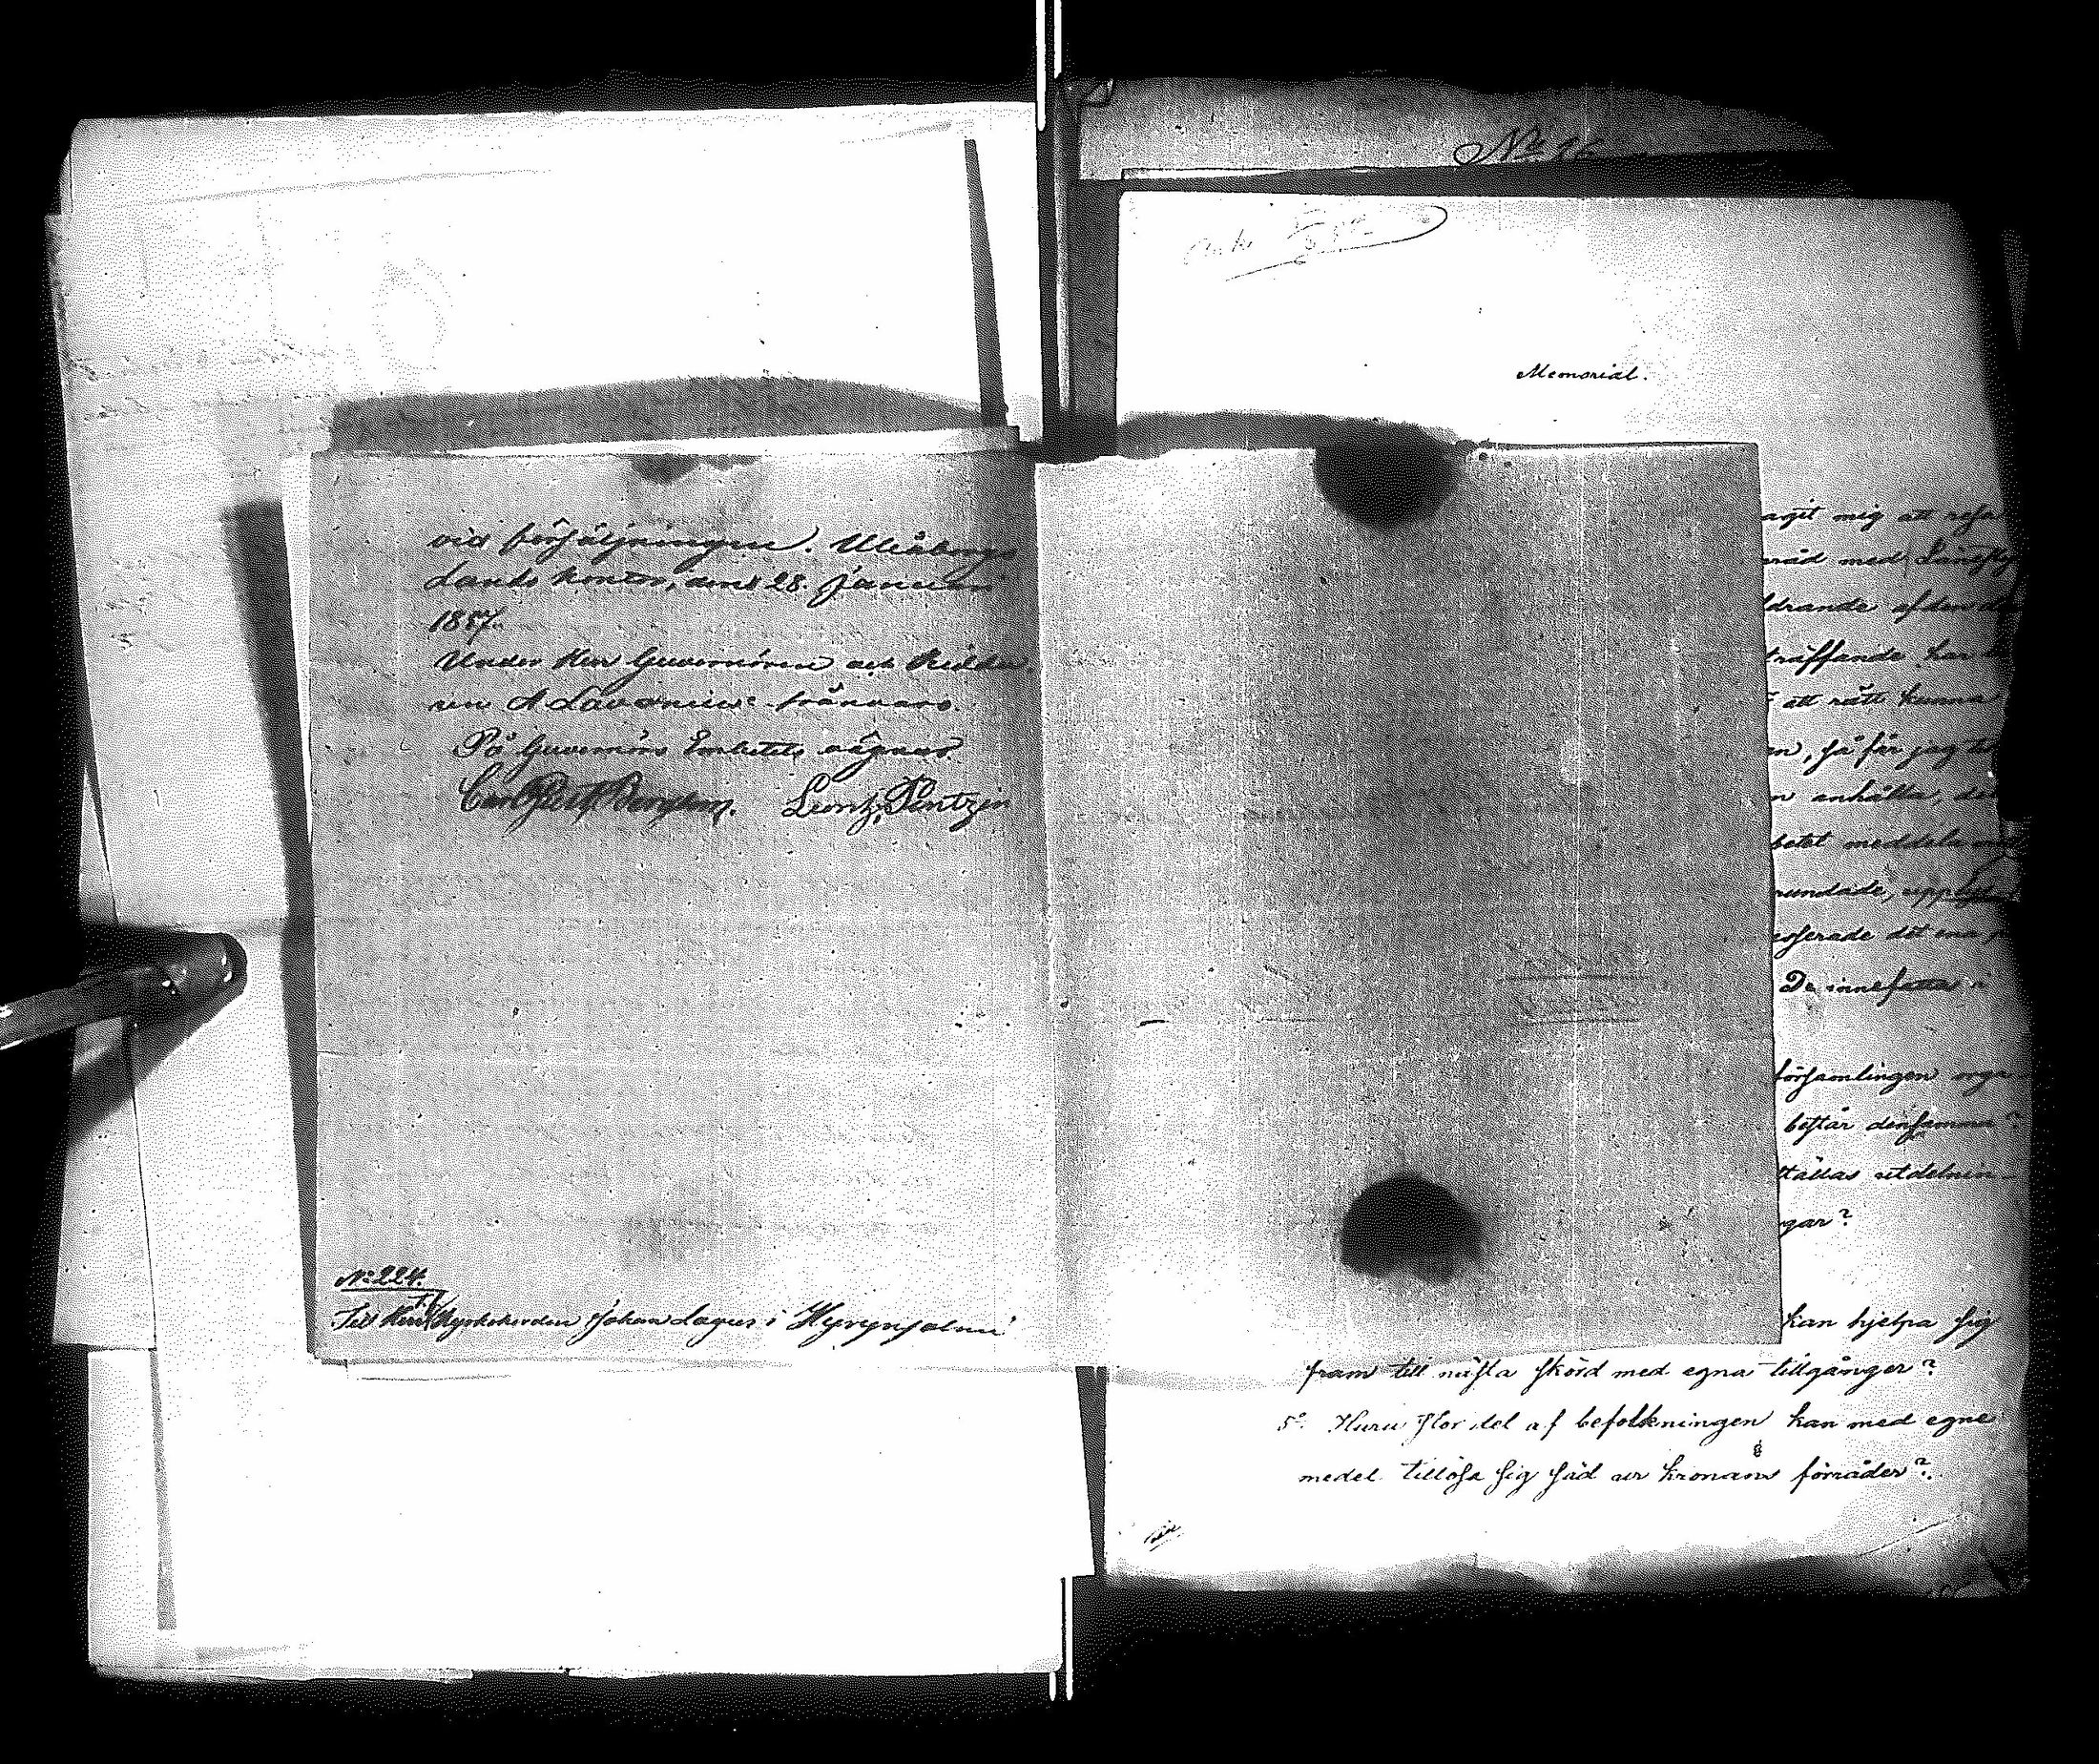 vid försäljningen. Uleåborgs
Lands kontor, den 28. Januari
1857.
Under Herr Guvernörens och Ridda-
ren A Lavonius' frånvaro.
På Guvernörs Embetets vägnar.
Carl Bergbom. Lorentz Pentzin
No 224.
Till Herr Kyrkoherden Johan Lagus i Hyrynsalmi
No 26
Memorial.
aget mig att resa
råd med Länssty
drande af den
träffande har
att rätt kunna
en, så får jag
n anhålla, det
betet meddela
rundade,
De innefatta
församlingen orga-
består densamma?
ställas utdelnin-
gar?
kan hjelpa sig
fram till nästa skörd med egna tillgånger?
5o Huru stor del af befolkningen kan med egne
medel tillösa sig säd ur kronans förråder?